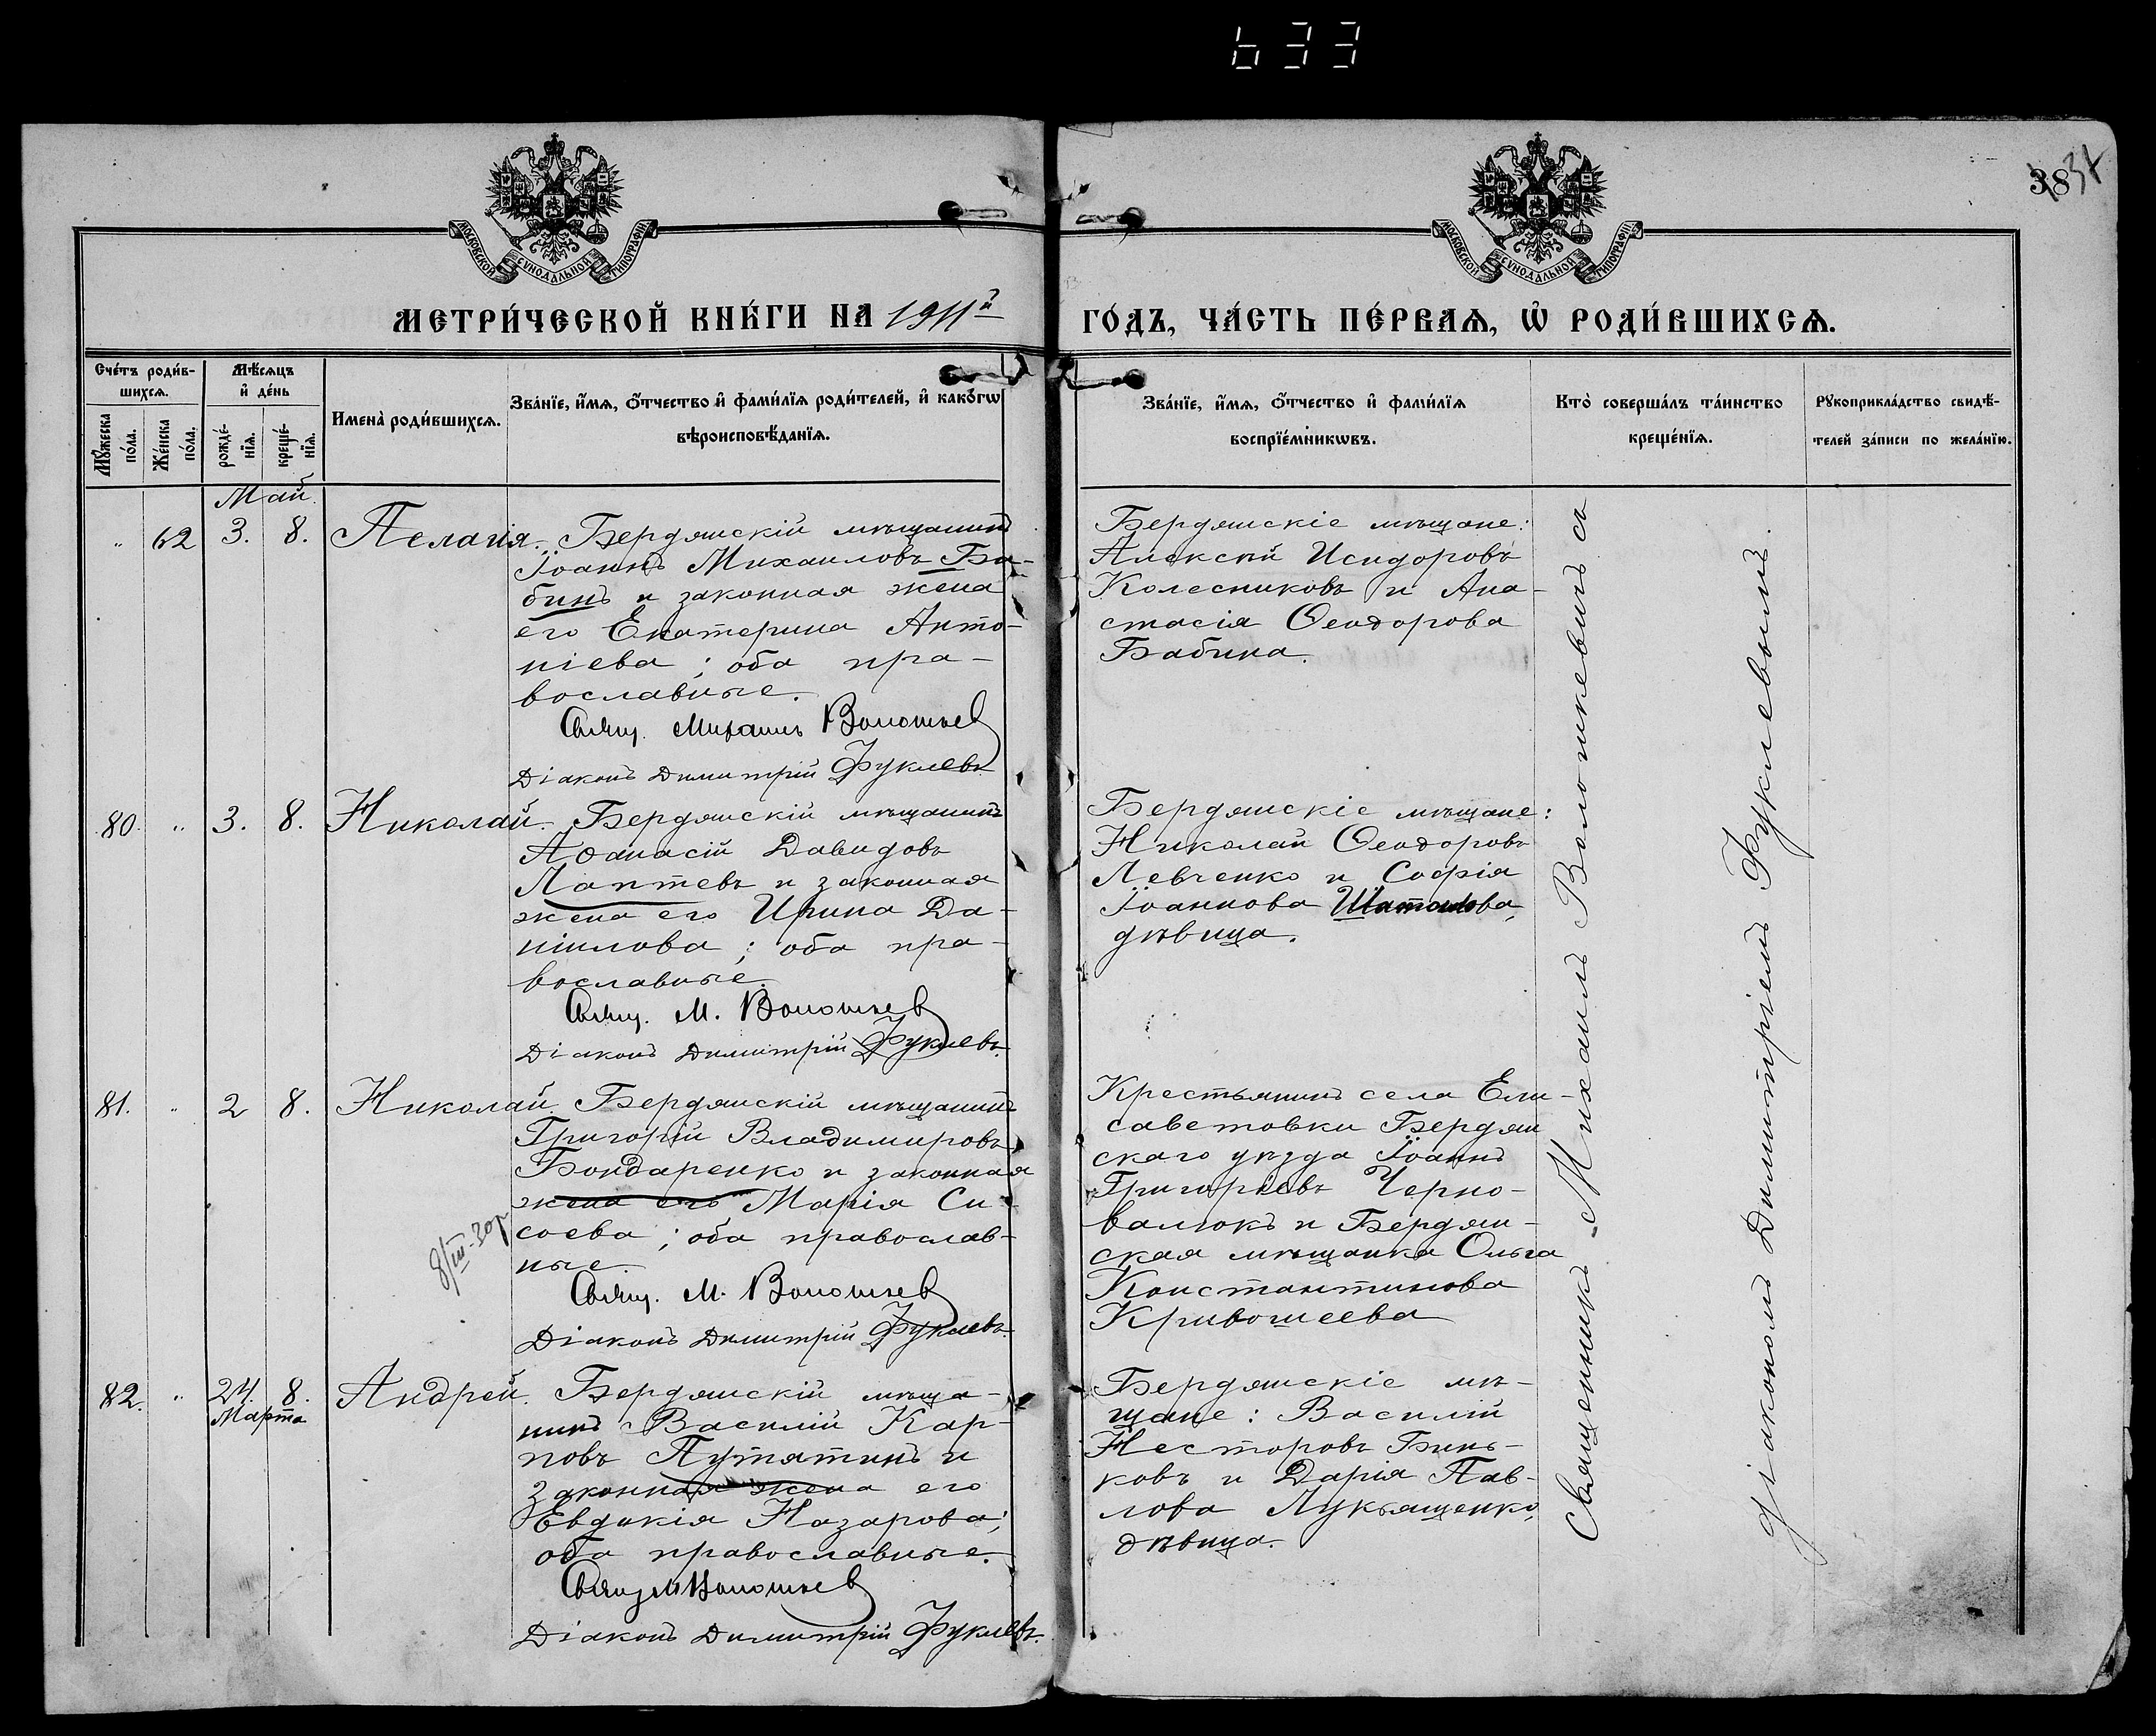 633
38 37
МОСКОВСКОЙ СУНОДАЛЬНОЙ ТИПОГРАФІИ
МОСКОВСКОЙ СУНОДАЛЬНОЙ ТИПОГРАФІИ
МЕТРИ́ЧЕСКОЙ КНИ́ГИ НА 1911й
ГО́ДЪ, ЧА́СТЬ ПЕ́РВАѦ, Ѡ҆ РОДИ́ВШИХСѦ.
Сче́тъ роди́в-
шихсѧ.
Мꙋ́жеска по́ла.
Же́нска по́ла.
Мѣ́сѧцъ
и҆ де́нь
рожде́-
нїѧ.
креще́-
нїѧ.
Имена̀ роди́вшихсѧ.
Зва́нїе, и҆́мѧ, ѻ҆́тчество и҆ фами́лїѧ роди́телей, и҆ како́гѡ
вѣроисповѣ́данїѧ.
Зва́нїе, и҆́мѧ, ѻ҆́тчество и҆ фами́лїѧ
воспрїе́мникѡвъ.
Кто̀ соверша́лъ та́инство
креще́нїѧ.
Рꙋкоприкла́дство свидѣ́-
телей за́писи по жела́нїю.
Май
„ 62 3. 8. Пелагія. Бердянскій мѣщанинъ
Іоаннъ Михаиловъ Ба-
бинъ и законная жена
его Екатерина Анто-
ніева; оба пра-
вославные.
Свящ. Михаилъ Волошкев
Діаконъ Димитрій Фуклевъ
Бердянскіе мѣщане:
Алексѣй Исидоровъ
Колесниковъ и Ана-
стасія Ѳеодорова
Бабина.
80. „ 3. 8. Николай. Бердянскій мѣщанинъ
Аѳанасій Давидовъ
Лаптевъ и законная
жена его Ирина Да-
ніилова; оба пра-
вославные.
Свящ. М. Волошкев
Діаконъ Димитрій Фуклевъ.
Бердянскіе мѣщане:
Николай Ѳеодоровъ
Левченко и Софія
Іоаннова Шаталова,
дѣвица.
81. „ 2 8. Николай. Бердянскій мѣщанинъ
Григорій Владимировъ
Бондаренко и законная
жена его Марія Сы-
соева; оба православ-
ные.
8/III-30р
Свящ. М. Волошкев
Діаконъ Димитрій Фуклевъ.
Крестьянинъ села Ели-
саветовки Бердян
скаго уѣзда Іоаннъ
Григорьевъ Черно-
валюкъ и Бердян-
ская мѣщанка Ольга
Константинова
Кривошеева
82. „ 24. 8. Андрей. Бердянскій мѣща-
Марта
нинъ Василій Кар-
повъ Путятинъ и
законная жена его
Евдокія Назарова;
оба православные.
Свящ М Волошкев
Діаконъ Димитрій Фуклевъ.
Бердянскіе мѣ-
щане: Василій
Несторовъ Бинь-
ковъ и Дарія Пав-
лова Лукьященко,
дѣвица.
Священникъ Михаилъ Волошкевичъ съ
діакономъ Димитріемъ Фуклевымъ.